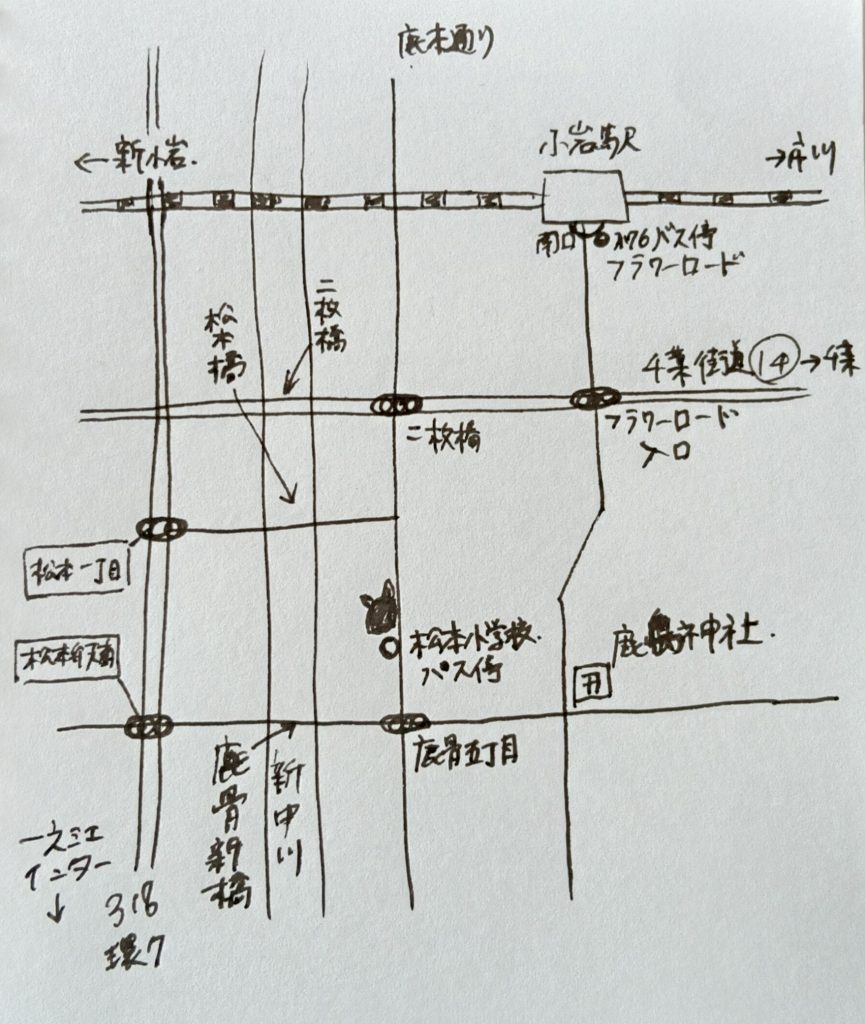 鹿本通り
←新小岩.
小岩駅
→市川
南口
バス停
フラワーロード
松本橋
二枚橋
千葉街道 14 →千葉
二枚橋
フラワーロード
入口
松本一丁目
松本小学校.
バス停
鹿島神社.
鹿骨五丁目
鹿骨新橋
新中川
一之江
インター
↓
318
環7